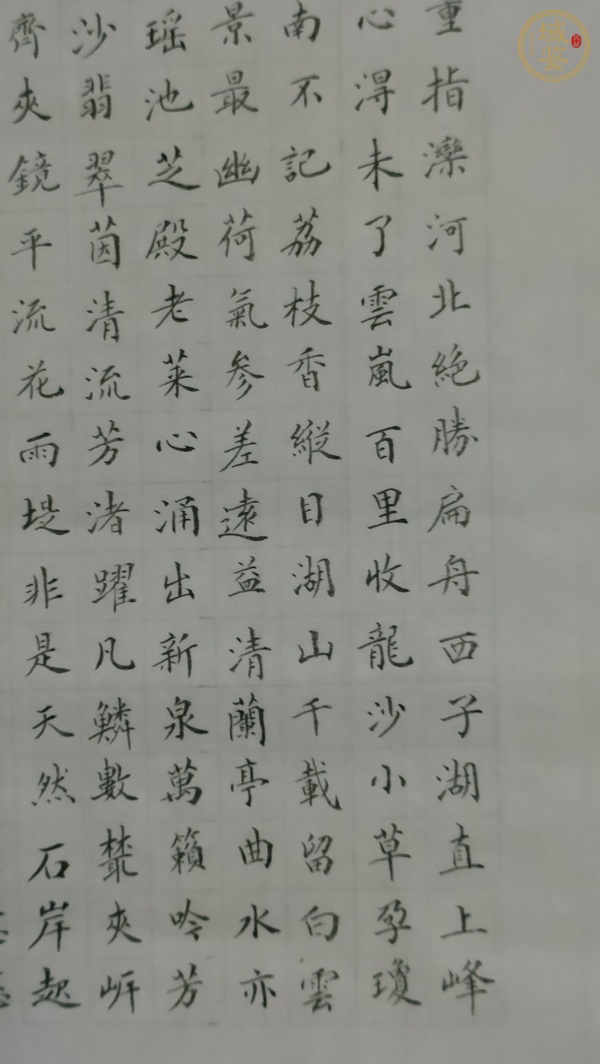 重指灤河北絶勝扁舟西子湖直上峰
心淂未了雲嵐百里收龍沙小草孕瓊
南不記荔枝香縱目湖山千載留白雲
景最幽荷氣參差遠益清蘭亭曲水亦
瑶池芝殿老萊心涌出新泉萬籟吟芳
沙翡翠茵清流芳渚躍凡鱗數叢夾岍
齊夾鏡平流花雨堤非是天然石岸起
域鑒